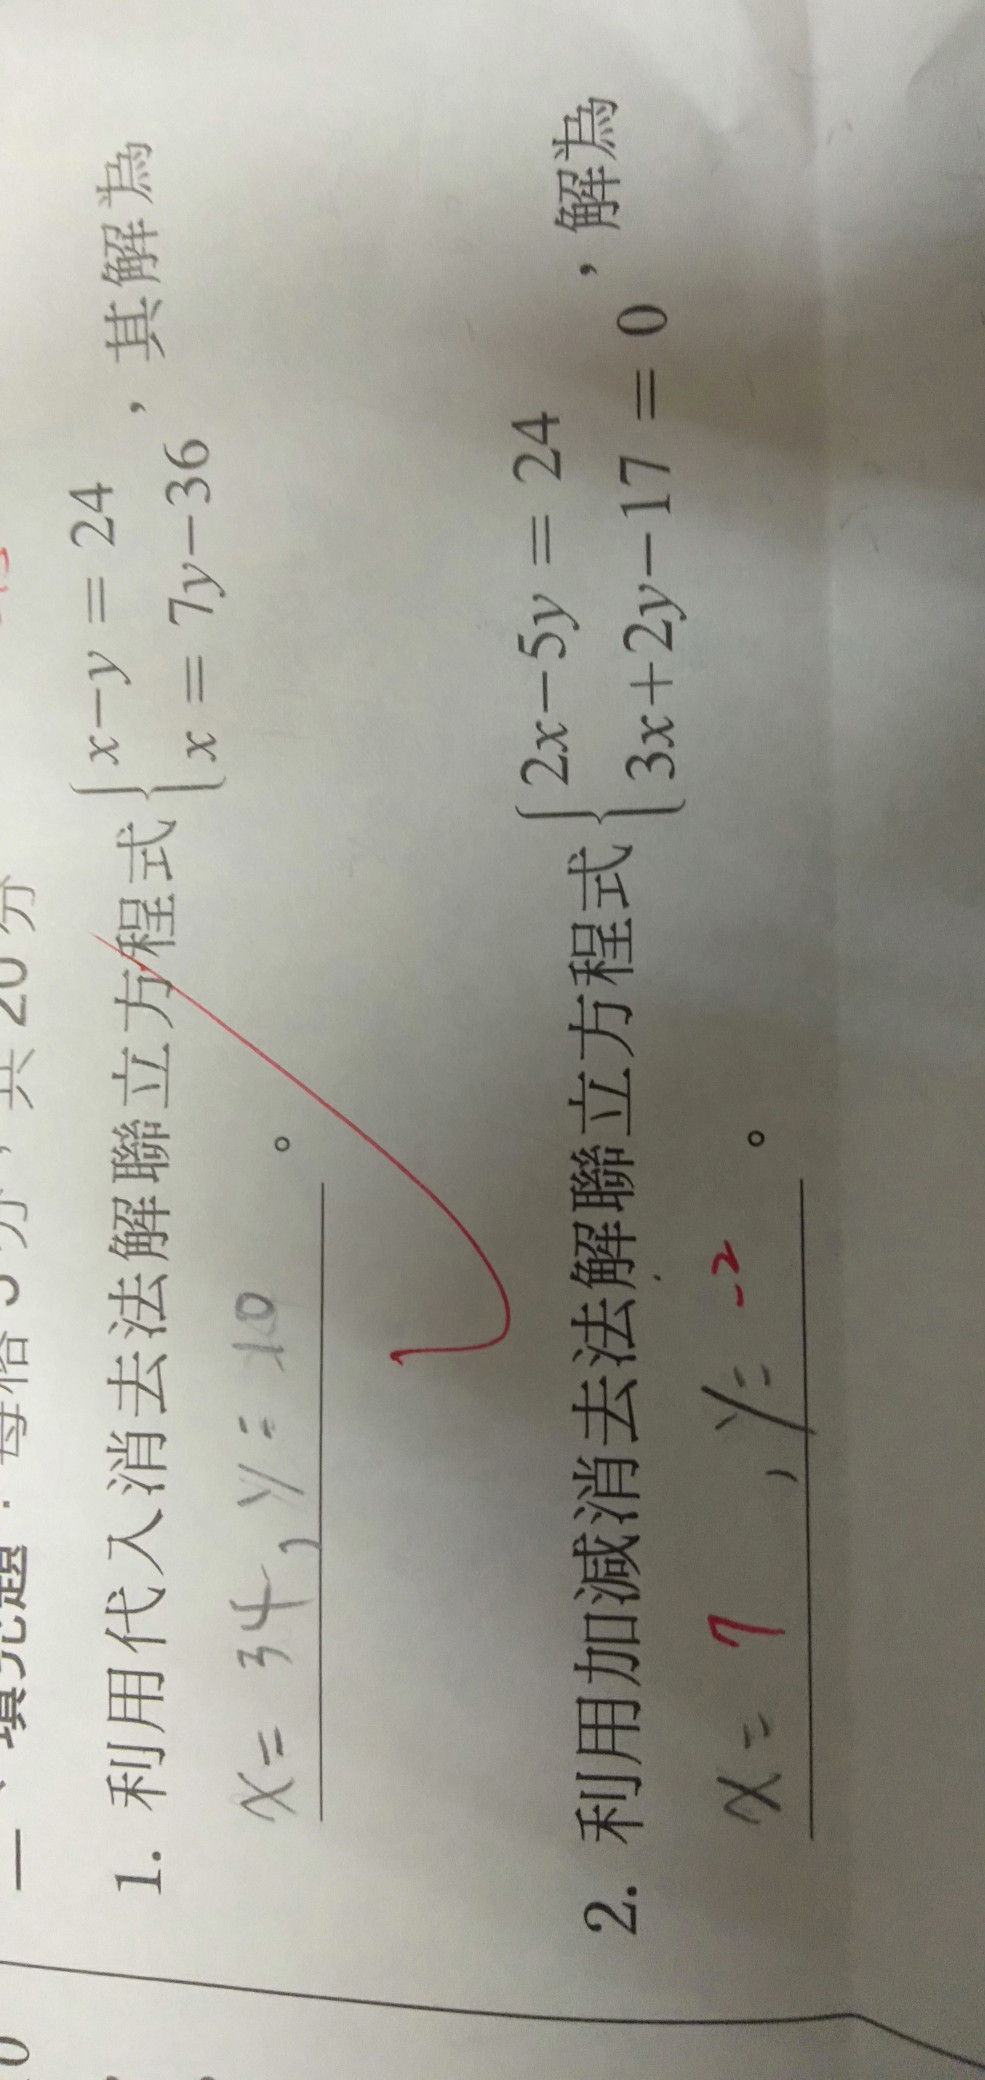 一、填充題：每格5分，共20分
1. 利用代入消去法解聯立方程式{x−y = 24
x = 7y−36 ，其解為
x= 34, y= 10 。
2. 利用加減消去法解聯立方程式{2x−5y = 24
3x+2y−17 = 0 ，解為
x= 7 , y= -2 。